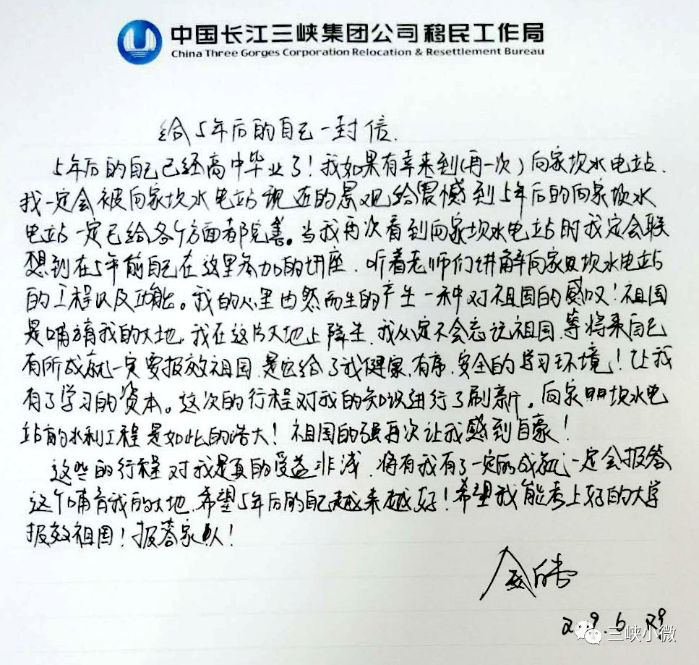 中国长江三峡集团公司移民工作局
China Three Gorges Corporation Relocation & Resettlement Bureau
给5年后的自己一封信.
5年后的自己已经高中毕业了！我如果有幸来到(再一次)向家坎水电站.
我一定会被向家坎水电站 的景观给震憾到5年后的向家坎水
电站一定已给各个方面都完善。当我再次看到向家坎水电站时我定会联
想到在5年前自己在这里参加的讲座. 听着老师们讲解向家坝坎水电站
的工程以及功能。我的心里由然而生的产生一种对祖国的感叹！祖国
是哺育我的大地. 我在这片大地上降生. 我从定不会忘记祖国. 等将来自己
有所成就一定要报效祖国. 是 给了我健康.有序.安全的学习环境！让我
有了学习的资本。这次的行程对我的知识进行了刷新。向家 坎水电
站的水利工程是如此的浩大！祖国的强再次让我感到自豪！
这些的行程对我是真的受益非浅. 将有我有了一定的成就一定会报答
这个哺育我的大地. 希望5年后的自己越来越好！希望我能考上好的大学
报效祖国！报答家人！
三峡小微